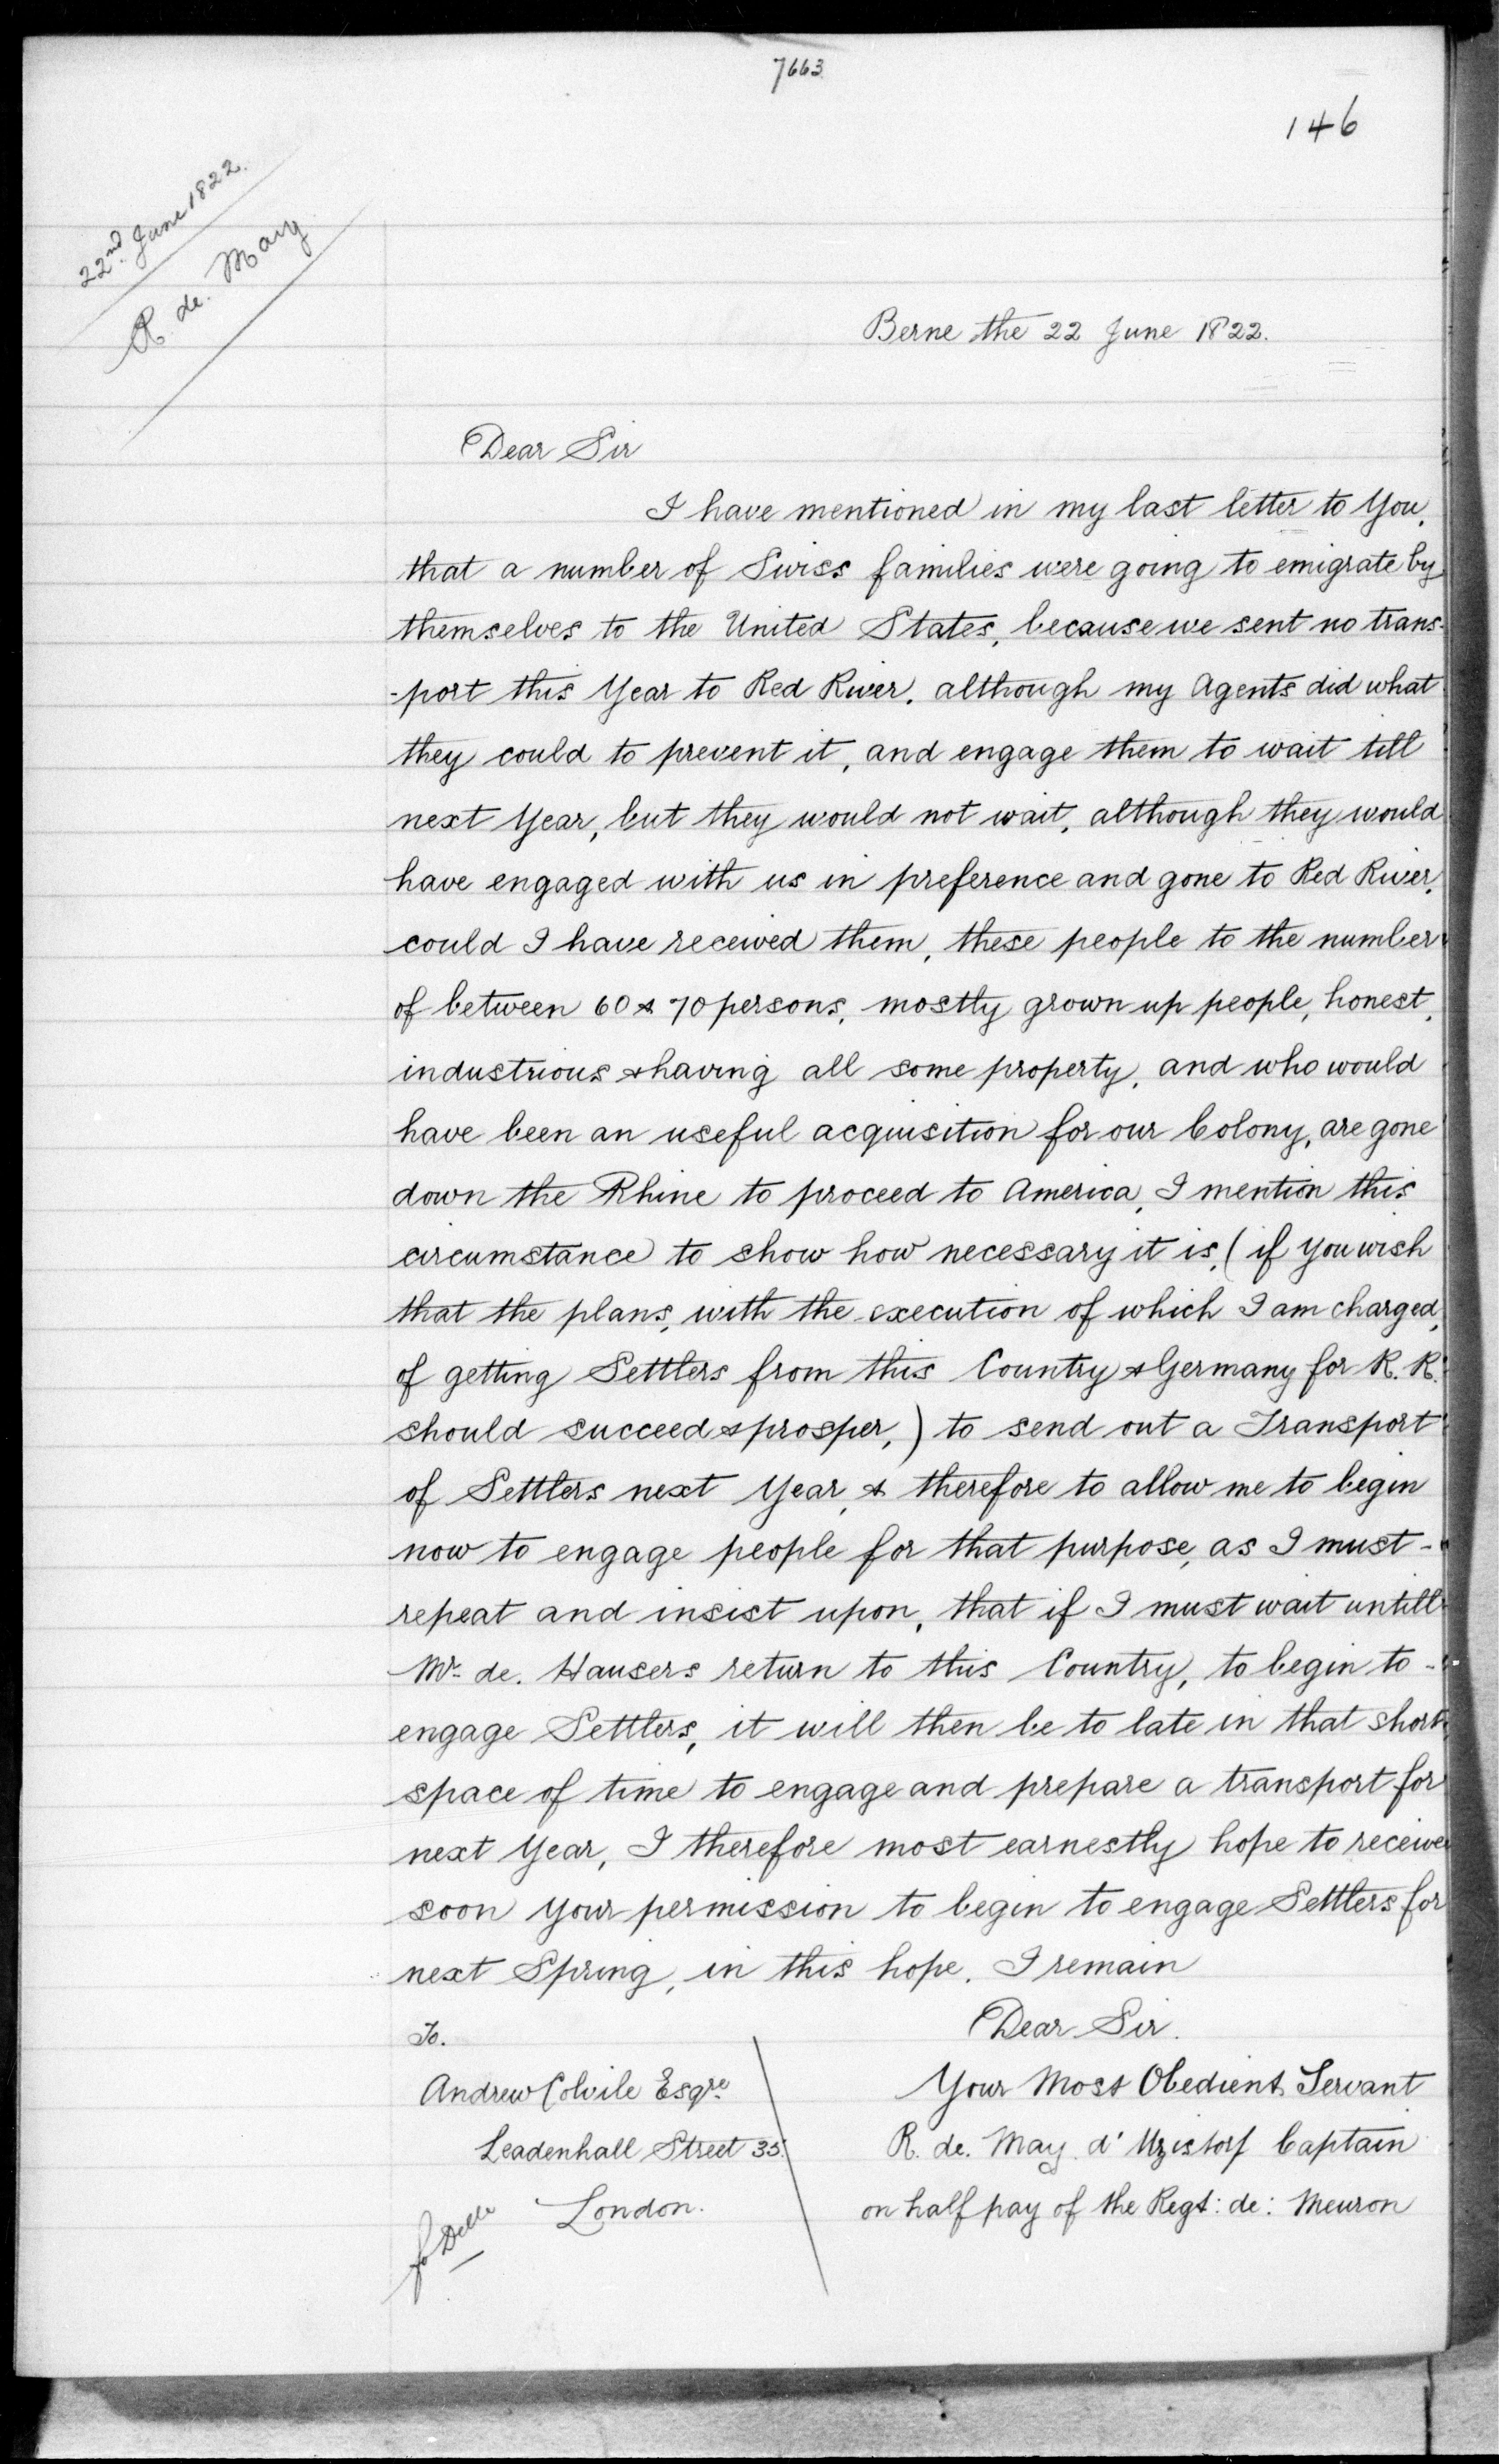 7663
146
22nd. June 1822.
R de. May
Berne the 22 June 1822.
Dear Sir
I have mentioned in my last letter to You,
that a number of Swiss families were going to emigrate by
themselves to the United States, because we sent no trans-
-port this Year to Red River, although my Agents did what
they could to prevent it, and engage them to wait till
next Year, but they would not wait, although they would
have engaged with us in preference and gone to Red River,
could I have received them, these people to the number
of between 60 & 70 persons, mostly grown up people, honest,
industrious & having all some property, and who would
have been an useful acquisition for our Colony, are gone
down the Rhine to proceed to America, I mention this
circumstance to show how necessary it is, (if you wish
that the plans, with the execution of which I am charged,
of getting Settlers from this Country & Germany for R. R.
should succeed & prosper,) to send out a Transport
of Settlers next Year, & therefore to allow me to begin
now to engage people for that purpose, as I must -
repeat and insist upon, that if I must wait untill
Mr. de. Hausers return to this Country, to begin to -
engage Settlers, it will then be to late in that short
space of time to engage and prepare a transport for
next Year, I therefore most earnestly hope to receive
soon your permission to begin to engage Settlers for
next Spring, in this hope, I remain
Dear Sir.
Your Most Obedient Servant
R. de. May. d' Uzistorf Captain
on half pay of the Regt: de: Meuron
To.
Andrew Colvile Esqre.
Leadenhall Street 35.
London.